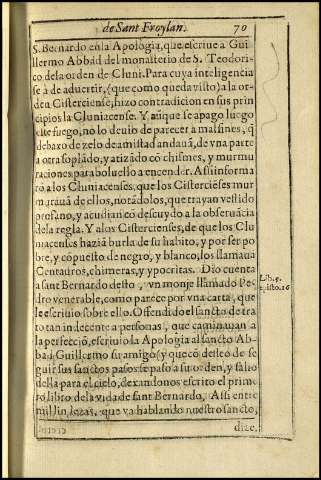 de Sant Froylan. 70
S. Bernardo en la Apologia, que escriue a Gui
llermo Abbad del monasterio de S. Teodori
co de la orden de Cluni. Para cuya inteligencia
se à de aduertir, (que como queda visto) a la or-
den Cisterciense, hizo contradicion en sus prin
cipios la Cluniacense. Y aũque se apago luego
este fuego, no lo deuio de parecer a malsines, q̃
debaxo de zelo de amistad andauã, de vna parte
a otra soplãdo, y atizãdo cõ chismes, y murmu
raciones para boluello a encender. Assi informa
rõ a los Cluniacenses, que los Cistercieses mur
murauã de ellos, notãdolos, que trayan vestido
profano, y acudian cõ descuydo a la obseruãcia
de la regla. Y a los Cistercienses, de que los Clu
niacenses haziã burla de su habito, y por ser po
bre, y cõpuesto de negro, y blanco, los llamauã
Centauros, chimeras, y ypocritas. Dio cuenta
a sant Bernardo desto, vn monje llamado Pe
dro venerable, como parece por vna carta, que
le escriuio sobre ello. Offendido el sancto de tra
to tan indecente a personas, que caminauan a
la perfecciõ, escriuio la Apologia al sancto Ab-
bad Guillermo su amigo (y que cõ desseo de se
guir sus sanctos pasos se paso a su orden, y salio
della para el cielo, dexandonos escrito el prime
ro libro de la vida de sant Bernardo. Assi entre
mil lin, que va hablando nuestro sancto,
dize,
Lib. 5.
epist. 16